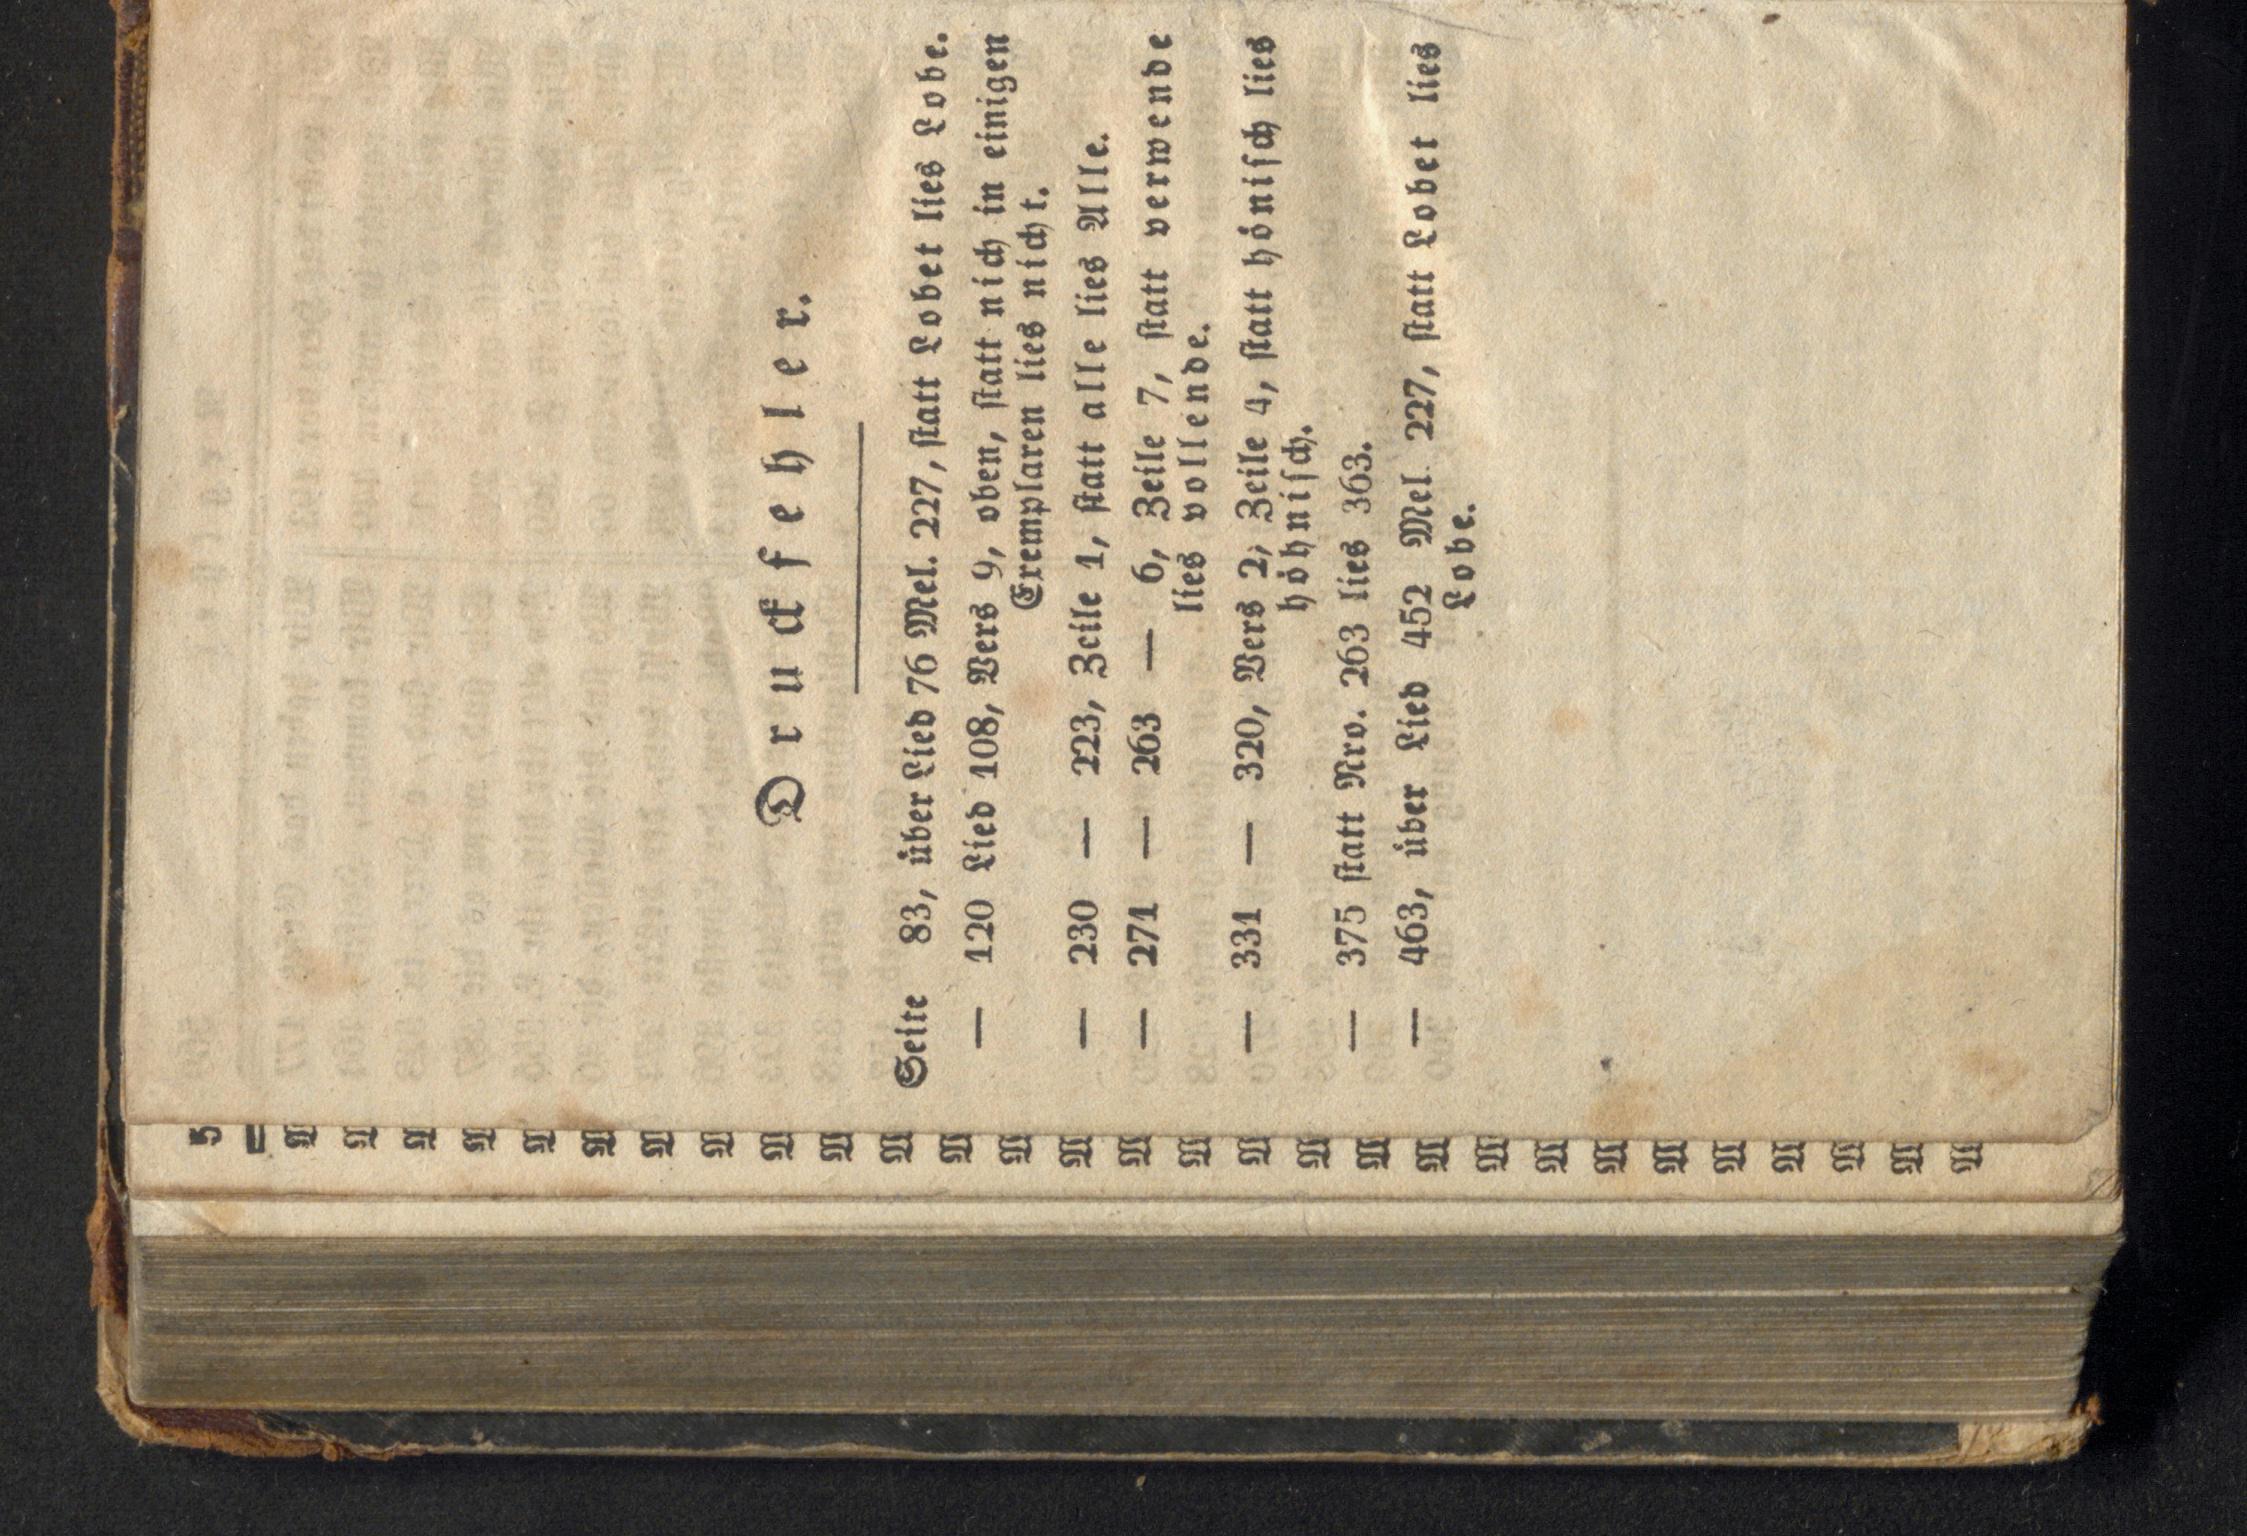 Druckfehler.
Seite 83, über Lied 76 Mel. 227, ſtatt Lobet lies Lobe.
— 120 Lied 108, Vers 9, oben, ſtatt nich in einigen
Exemplaren lies nicht.
— 230 — 223, Zeile 1, ſtatt alle lies Alle.
— 271 — 263 — 6, Zeile 7, ſtatt verwende
lies vollende.
— 331 — 320, Vers 2, Zeile 4, ſtatt höniſch lies
höhniſch.
— 375 ſtatt Nro. 263 lies 363.
— 463, über Lied 452 Mel. 227, ſtatt Lobet lies
Lobe.